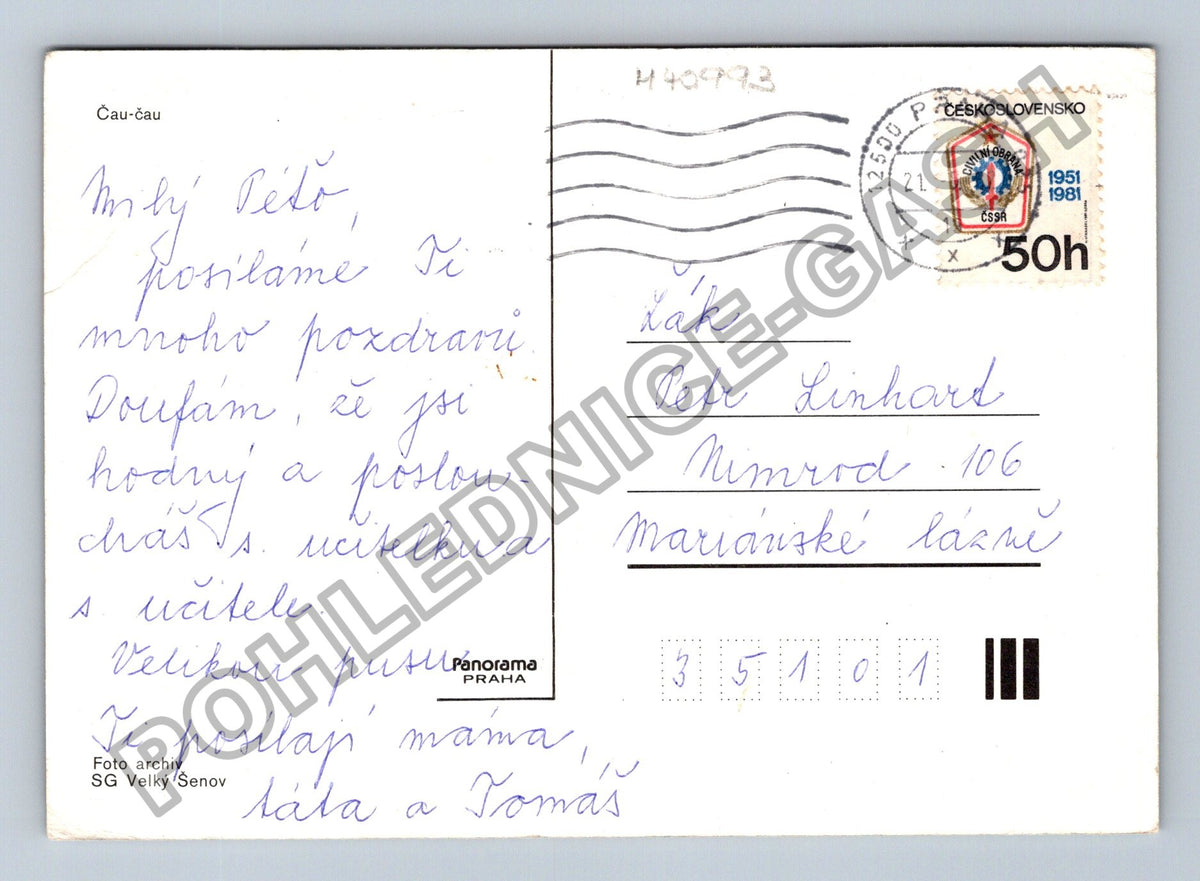 H40993
Čau-čau
Milý Péťo,
posíláme Ti
mnoho pozdravů.
Doufám, že jsi
hodný a poslou-
cháš s. učitelku a
s. učitele.
Velikou pusu
Ti posílají máma,
táta a Tomáš
Panorama
PRAHA
Foto archiv
SG Velký Šenov
12500 PRAHA
21.
x
ČESKOSLOVENSKO
CIVILNÍ OBRANA
ČSSR
1951
1981
50h
Žák
Petr Linhart
Nimrod 106
Mariánské lázně
35101
POHLEDNICE-GASH